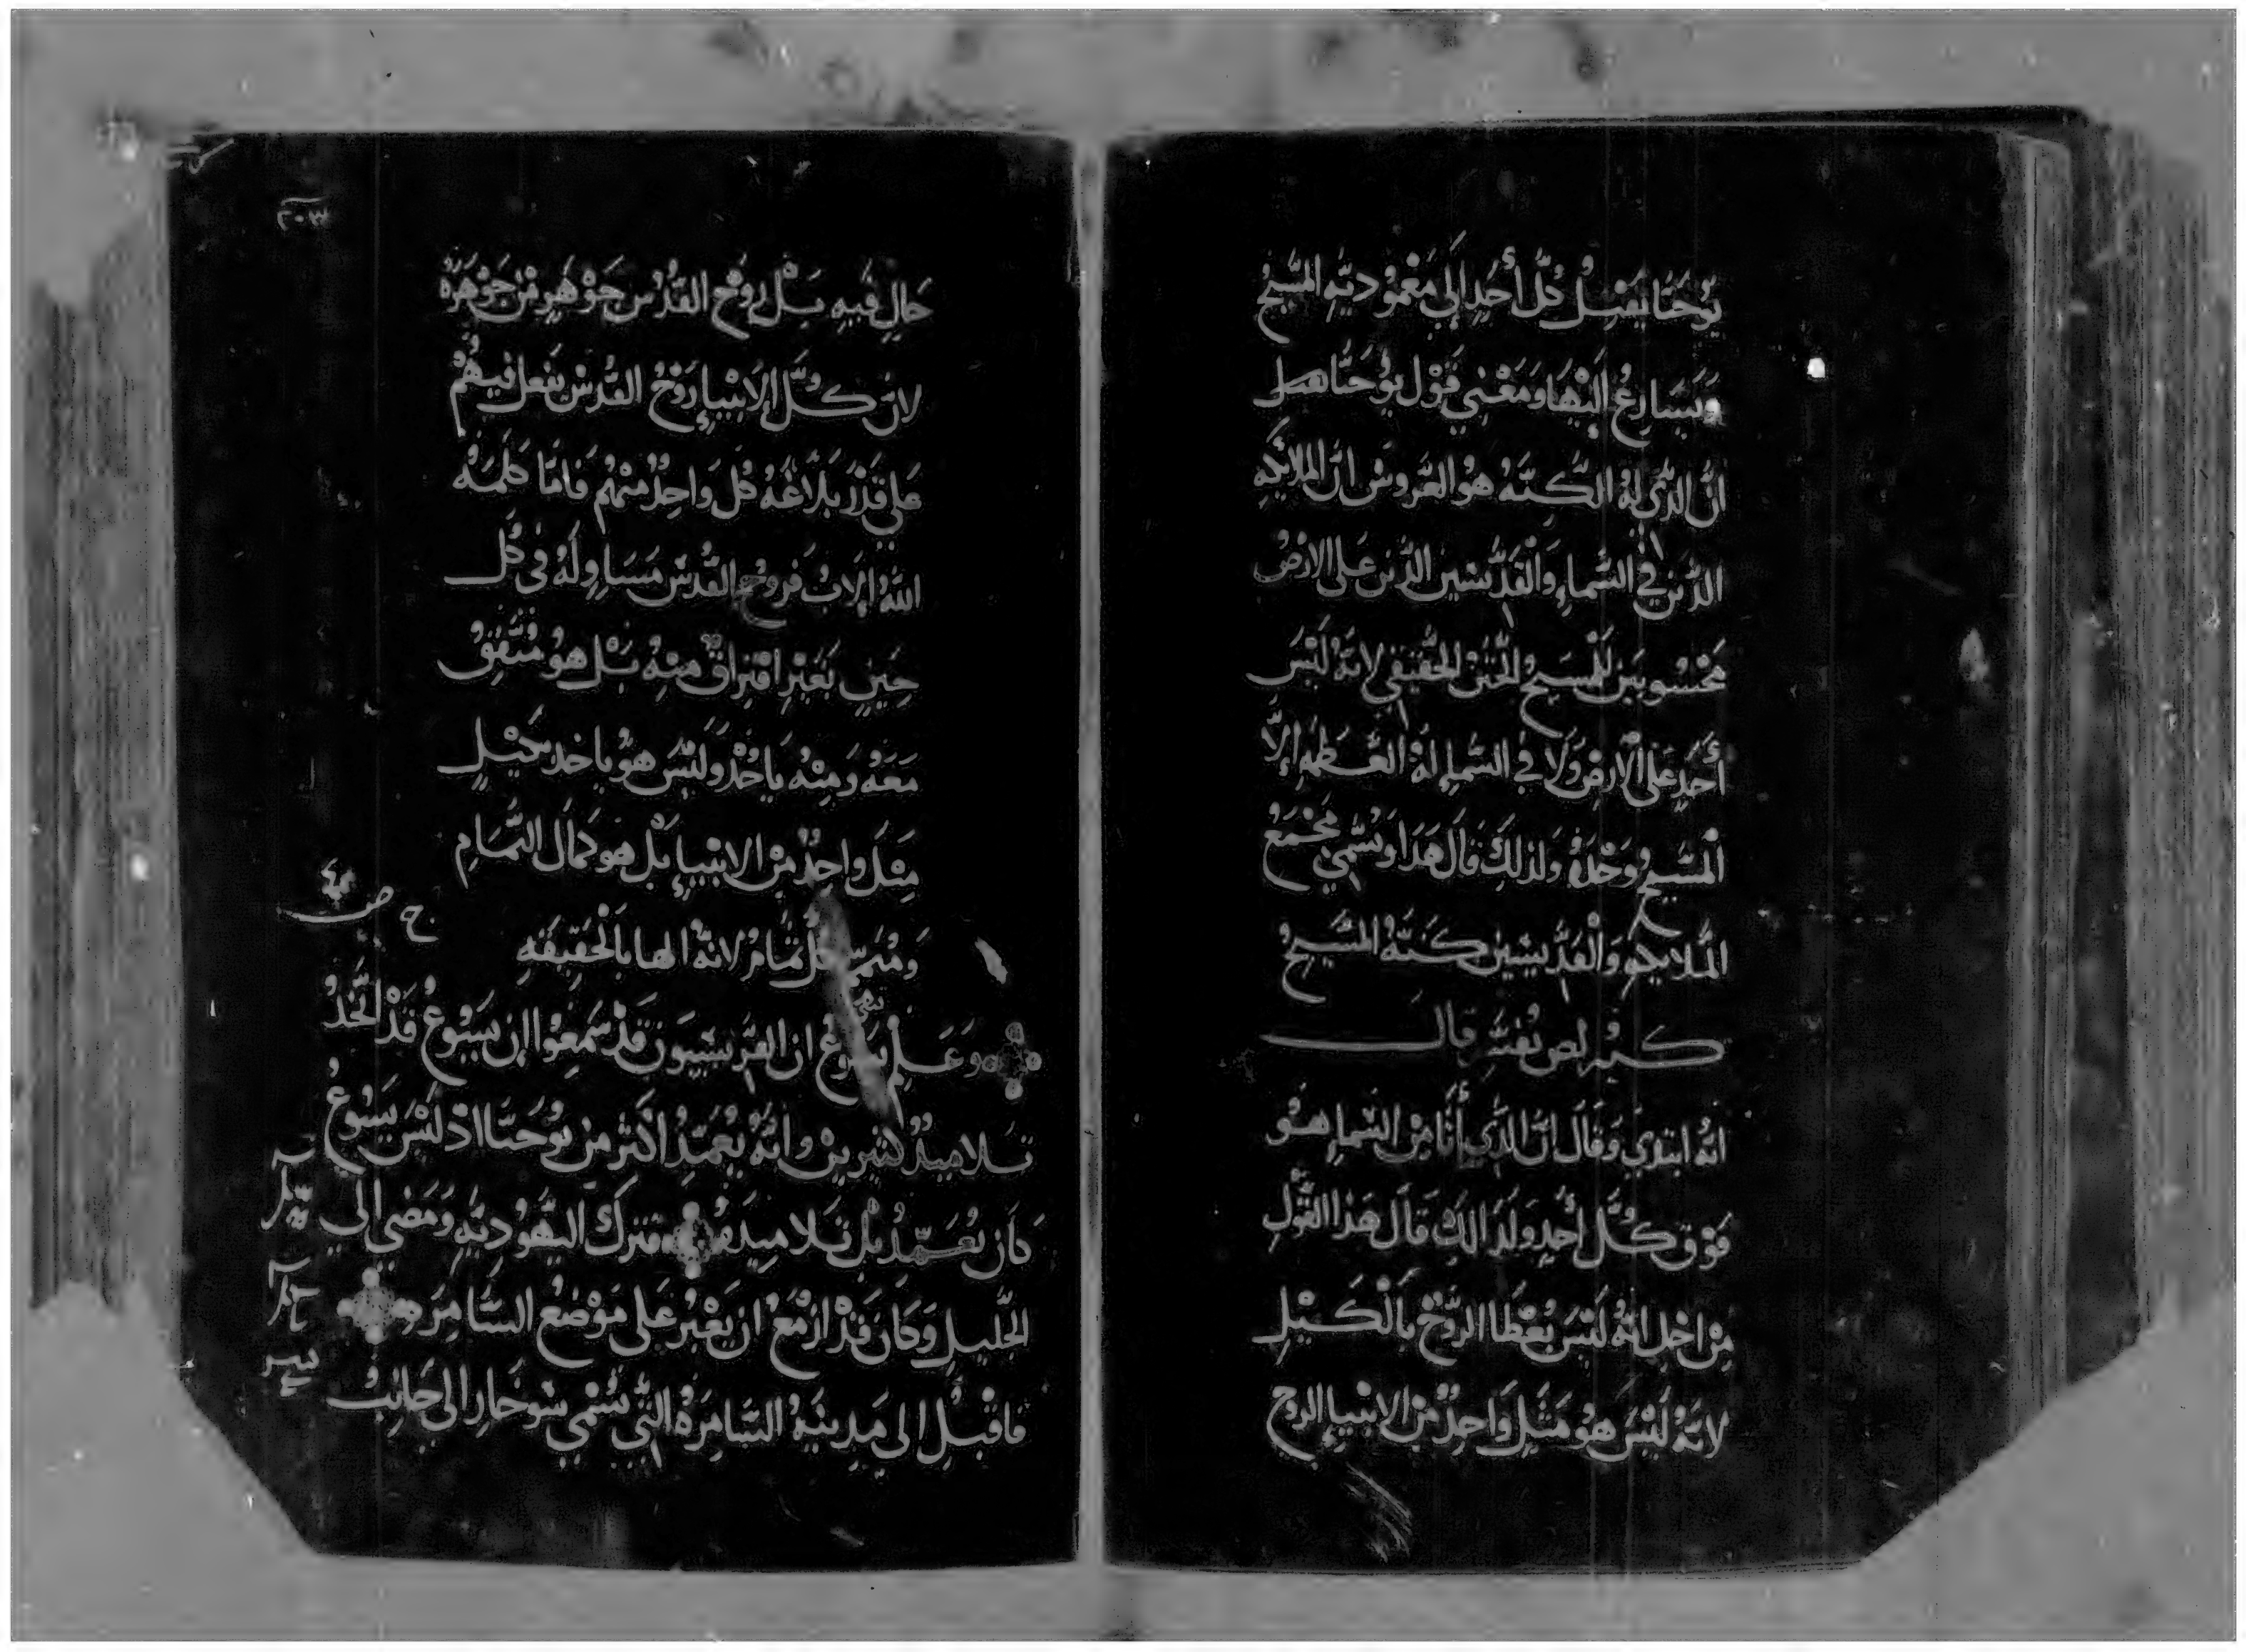 يُوحَنَّا يَقْبِلُ كُلّ أحَدٍ إلَي مَعْمُودِيَّهِ المَسِّيحُ
وَيَسَارِعُ اَلَيْهَا وَمَعْنِي قَوْل يُوحَنَّا هـ
انَّ الذَّي لهُ الكَنَّهُ هُو العَروسْ انَّ الملايكهِ
الذَّينَ في السَّماءِ وَالْقَدِّيسَينَ الذَّينَ عَلى الارْضُ
مَحْسُوبَينْ لِلْمَسِيحُ الخَتنْ الحَقيقي لانهُ لَيْسَ
أَحَدٍ عَلَى الْأَرضِ وَلَا في السَّماءِ لهُ العَظَمَه إلَّا
الْمسَّيحُ وَحْدَهُ ولذلِكَ قَالَ هَدَا وَيُسَّمِي مجْمَعُ
المْلايكهِ وَالْقدِّيسَينَ كَنَتَّهُ المَسَّيحُ
كيرلص يفسَّر قالـ
انهُ ابتدي وَقَالَ انّ الذَّي أَتَا مِنْ السَّماءِ هُـو
فَوْق كُلّ أحُدٍ ولدَالِكِ قَالَ هَذا القَّوْلِ
مِنْ اجْلِ انَّهُ لَيْسَ يُعْطَا الرَّوُحْ بِالْكَيْلِ
لانَهُ لَيْسَ هُو مَثَل وَاحِدٌ مَنْ الانبْيإِ الروح
٢٠٣
حَالٍ فيهِ بَلْ روُحْ القدُسْ جَوْهَرٍ مْن جَوْهَرَهُ
لانّ كُلّ الانبْيإِ رَوُحْ القُدسْ يَفعل فيهُمْ
عَلي قَدْر بَلَاغَهُ كُلَ وَاحِدٌ منْهُم فامّا كلمَهُ
اللهُ الابْ فَروحْ القُدسْ مَسَاوٍ لهُ في كُل
حِينٍ بَغَيْرِ افترَاقٌ مِنهُ بَلْ هُو مُتفِقُ
مَعَهُ وَمِنْهُ يَاخُدْ وَلَيْسَ هُو يَاخد بكَيْلٍ
مِثلَ واحِدٌ مَنْ الانبْيإِ بَلْ هو كمَال التَّمَامِ
وَمُتَمِّم كُل تمَام لانهُ الها بالحَقِيقَهِ
وَعَلِمْ يسُوعْ ان الفَّريسييونَ قدْ سَمِعُوا ان يَسُوعُ قَدْ اتَّخَدُ
تَلامِيدُ كثيرينْ وانهُ يُعَمِّدُ اكثرْ مِنْ يُوحَنَّا اذ لَيْسَ يَسُوعُ
كَانَ يُعَمِّدُ بَلْ تَلاميِدهُ فترك اليَّهُوديَّهِ وَمَضي الى
الجَليِلِ وَكَانَ قَدْ ازْمعْ ان يَعْبُرُ عَلى مَوْضَعْ السَّامِرَه
فاقبْلِ الى مَدِينَهُ السَّامِرَهُ التَّي يُسْمي سُوخَار الى جَانِبْ